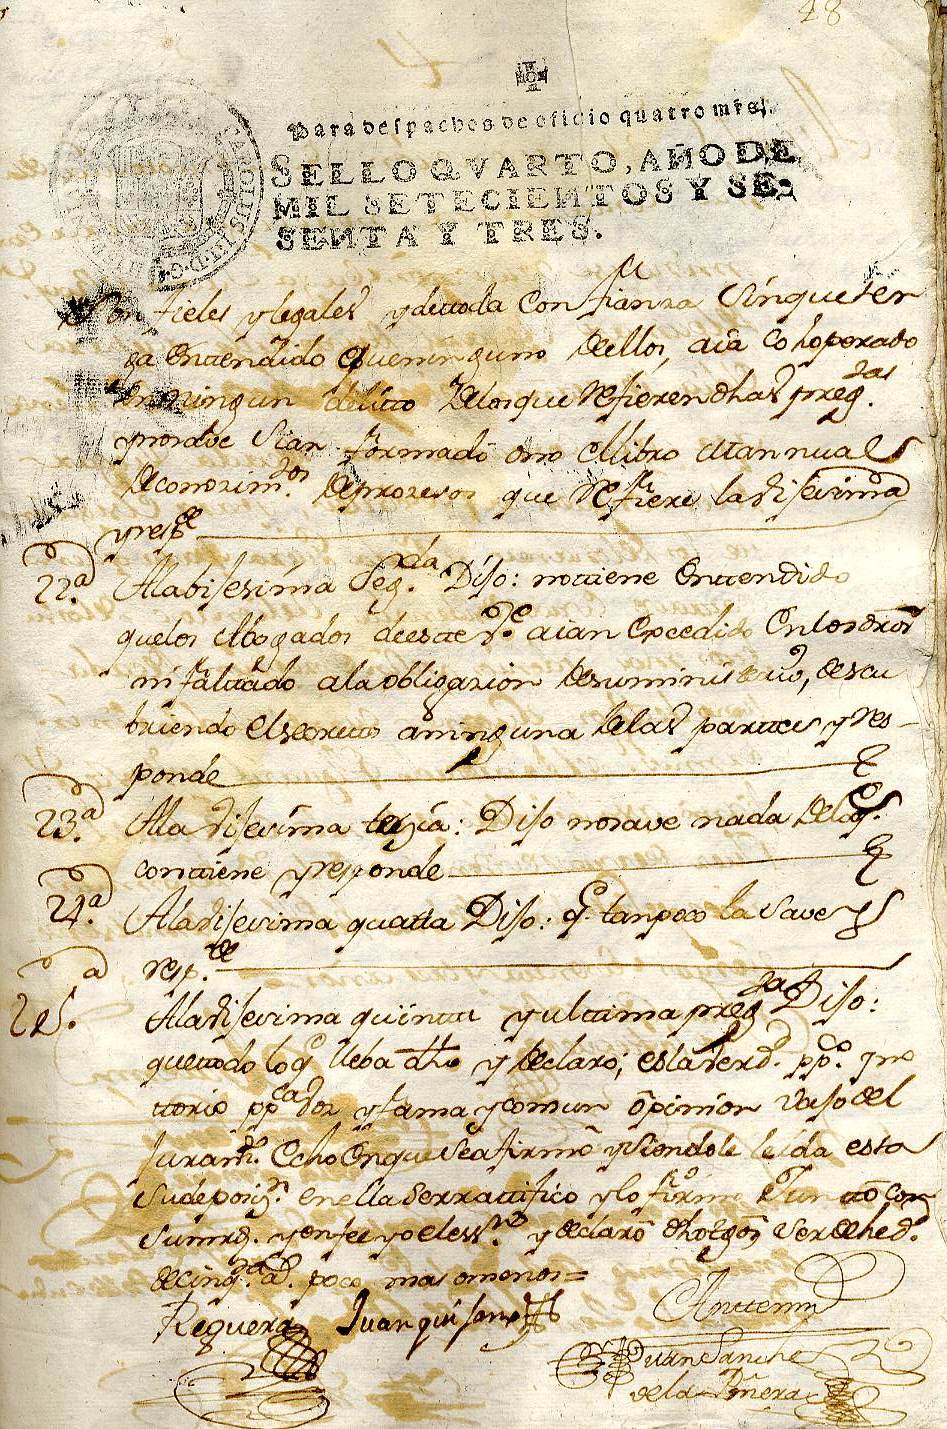 48
Para despachos de oficio quatro mrs.
SELLO QVARTO, AÑO DE
MIL SETECIENTOS Y SE-
SENTA Y TRES.
CAROLUS III D.G.
Son fieles y legales y de toda Confianza Sinqueten
ga entendido queninguno dellos, aia Cohoperado
en ningun delitto delosque Refieren dhas preg.tas
y no save sian formado o no el libro Mannual
de conozim.tos de prozesos que Refiere la visesima
y resp.de
22ª. Ala bisesima Seg.da Diso: nottiene Enttendido
quelos Abogados de estte aian Excedido En los dros
ni falttado ala obligazion de suministrarlos, descu
briendo el secretto aninguna delas parttes y res-
ponde
23ª. Ala visesima terzia: Diso nosave nada delo q.e
conttiene y responde
24ª. Ala visesima quatta Diso: q.e tanpoco la save y
resp.de
25.ª Ala visesima quintta y ulttima preg.ta Diso:
quettodo lo q.e lleba dho y declaro; es la verd.d pp.co y no
ttorio pp.ca voz y fama y comun opinion vajo del
Juram.to echo En que se afirmo y siendole leida esta
su deposiz.n en ella serrattifico y lo firmo Juntto con
su mrd. y en fee yo el ess.no y declaro dho tgo ser de hed.d
de cinq.ta ad. poco mas o menos =
Reguera Juan quisano Antte mi
Juan Sanche
de la Piñera